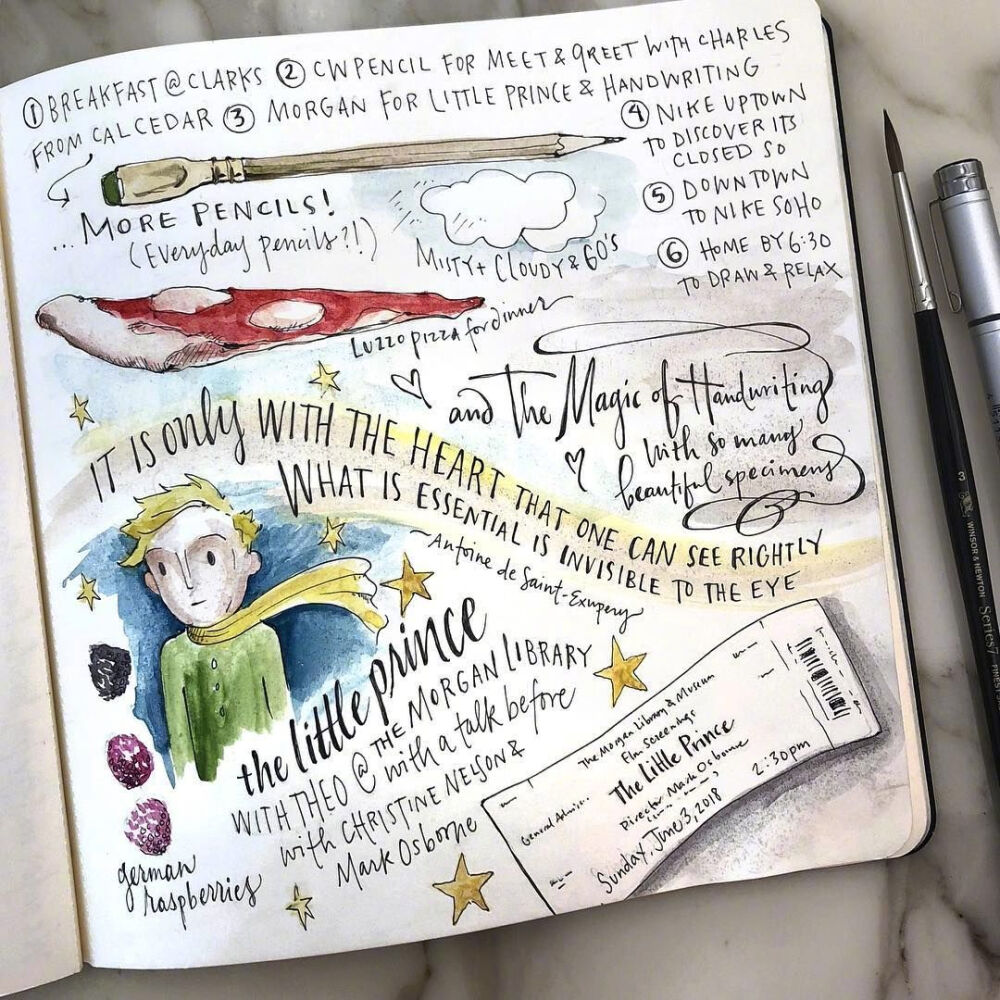 ① BREAKFAST @ CLARKS ② CW PENCIL FOR MEET & GREET WITH CHARLES
FROM CAL CEDAR ③ MORGAN FOR LITTLE PRINCE & HANDWRITING
④ NIKE UPTOWN
TO DISCOVER ITS
CLOSED SO
⑤ DOWNTOWN
TO NIKE SOHO
⑥ HOME BY 6:30
TO DRAW & RELAX
... MORE PENCILS!
(Everyday pencils?!)
MISTY + CLOUDY & 60's
Luzzo pizza for dinner
and The Magic of Handwriting
with so many
beautiful specimens
IT IS only WITH THE HEART THAT ONE CAN SEE RIGHTLY
WHAT IS ESSENTIAL IS INVISIBLE TO THE EYE
- Antoine de Saint-Exupery
the little prince
WITH THEO @ THE MORGAN LIBRARY
with a talk before
with CHRISTINE NELSON &
Mark Osborne
german
raspberries
The Morgan Library & Museum
Film screenings
The Little Prince
Director Mark Osborne
Sunday, June 3, 2018
2:30pm
General Admis...
3
WINSOR & NEWTON
Series 7